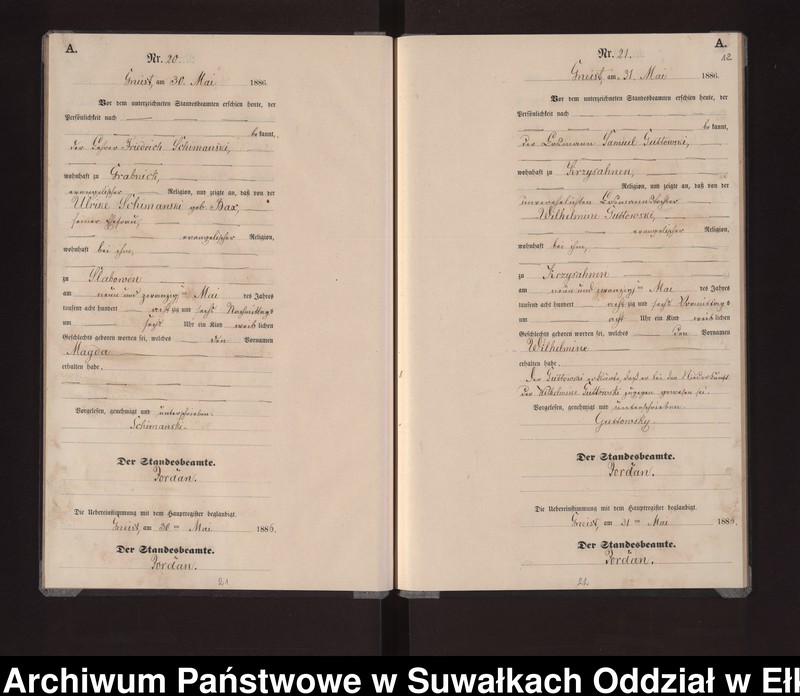 A.
Nr. 20.
Gneist, am 30. Mai 1886.
Vor dem unterzeichneten Standesbeamten erschien heute, der
Persönlichkeit nach
be kannt,
der Lehrer Friedrich Schimanski,
wohnhaft zu Grabnick,
evangelischer Religion, und zeigte an, daß von der
Ulrike Schimanski geb. Bax,
seiner Ehefrau,
evangelischer Religion,
wohnhaft bei ihm,
zu Slabowen
am neun und zwanzigten Mai des Jahres
tausend acht hundert acht zig und sechs Nachmittags
um sechs Uhr ein Kind weib lichen
Geschlechts geboren worden sei, welches den Vornamen
Magda
erhalten habe.
Vorgelesen, genehmigt und unterschrieben.
Schimanski.
Der Standesbeamte.
Jordan.
Die Uebereinstimmung mit dem Hauptregister beglaubigt.
Gneist, am 30ten Mai 1886.
Der Standesbeamte.
Jordan.
21
A.
12
Nr. 21.
Gneist, am 31. Mai 1886.
Vor dem unterzeichneten Standesbeamten erschien heute, der
Persönlichkeit nach
be kannt,
der Losmann Samuel Guttowski,
wohnhaft zu Krzysahnen,
Religion, und zeigte an, daß von der
unverehelichten Losmannstochter
Wilhelmine Guttowski,
evangelischer Religion,
wohnhaft bei ihm,
zu Krzysahnen
am neun und zwanzigten Mai des Jahres
tausend acht hundert acht zig und sechs Vormittags
um acht Uhr ein Kind weib lichen
Geschlechts geboren worden sei, welches den Vornamen
Wilhelmine
erhalten habe.
Der Guttowski erklärte, daß er bei der Niederkunft
der Wilhelmine Guttowski zugegen gewesen sei.
Vorgelesen, genehmigt und unterschrieben.
Guttowsky
Der Standesbeamte.
Jordan.
Die Uebereinstimmung mit dem Hauptregister beglaubigt.
Gneist, am 31ten Mai 1886.
Der Standesbeamte.
Jordan.
Archiwum Państwowe w Suwałkach Oddział w Ełk